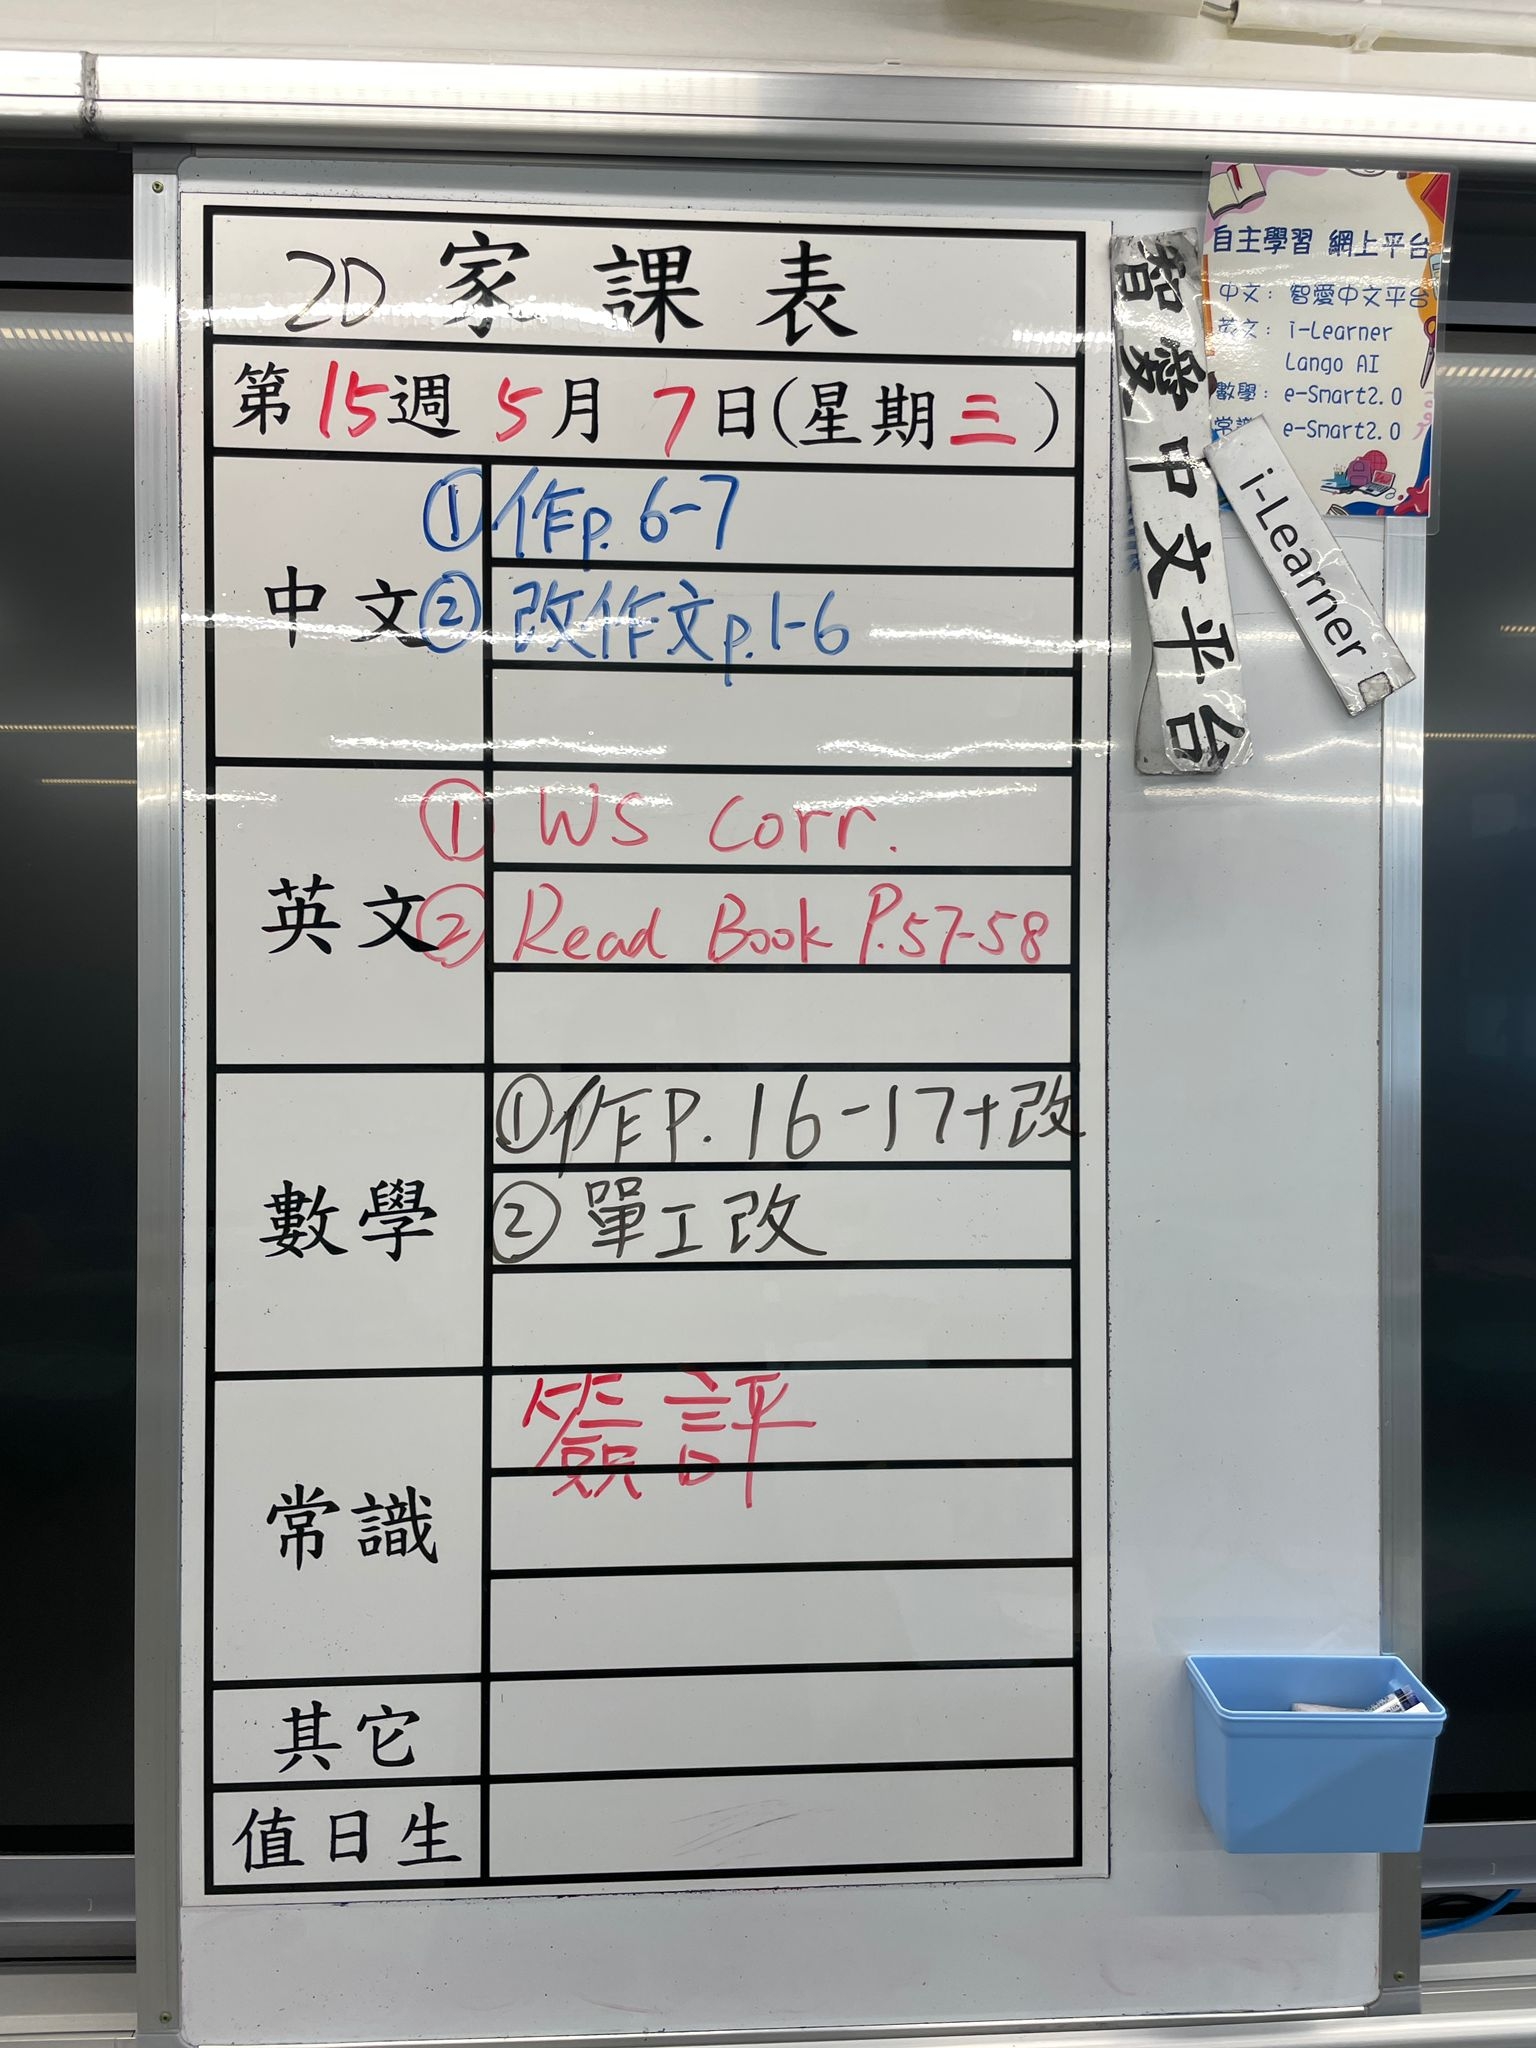 2D 家課表
第15週 5月7日(星期三)
中文
① 作p.6-7
② 改作文p.1-6
英文
① WS Corr.
② Read Book P.57-58
數學
① 作P.16-17+改
② 單工改
常識
簽評
其它
值日生
智愛中文平台
i-Learner
自主學習 網上平台
中文: 智愛中文平台
英文: i-Learner
Lango AI
數學: e-Smart2.0
常識 e-Smart2.0